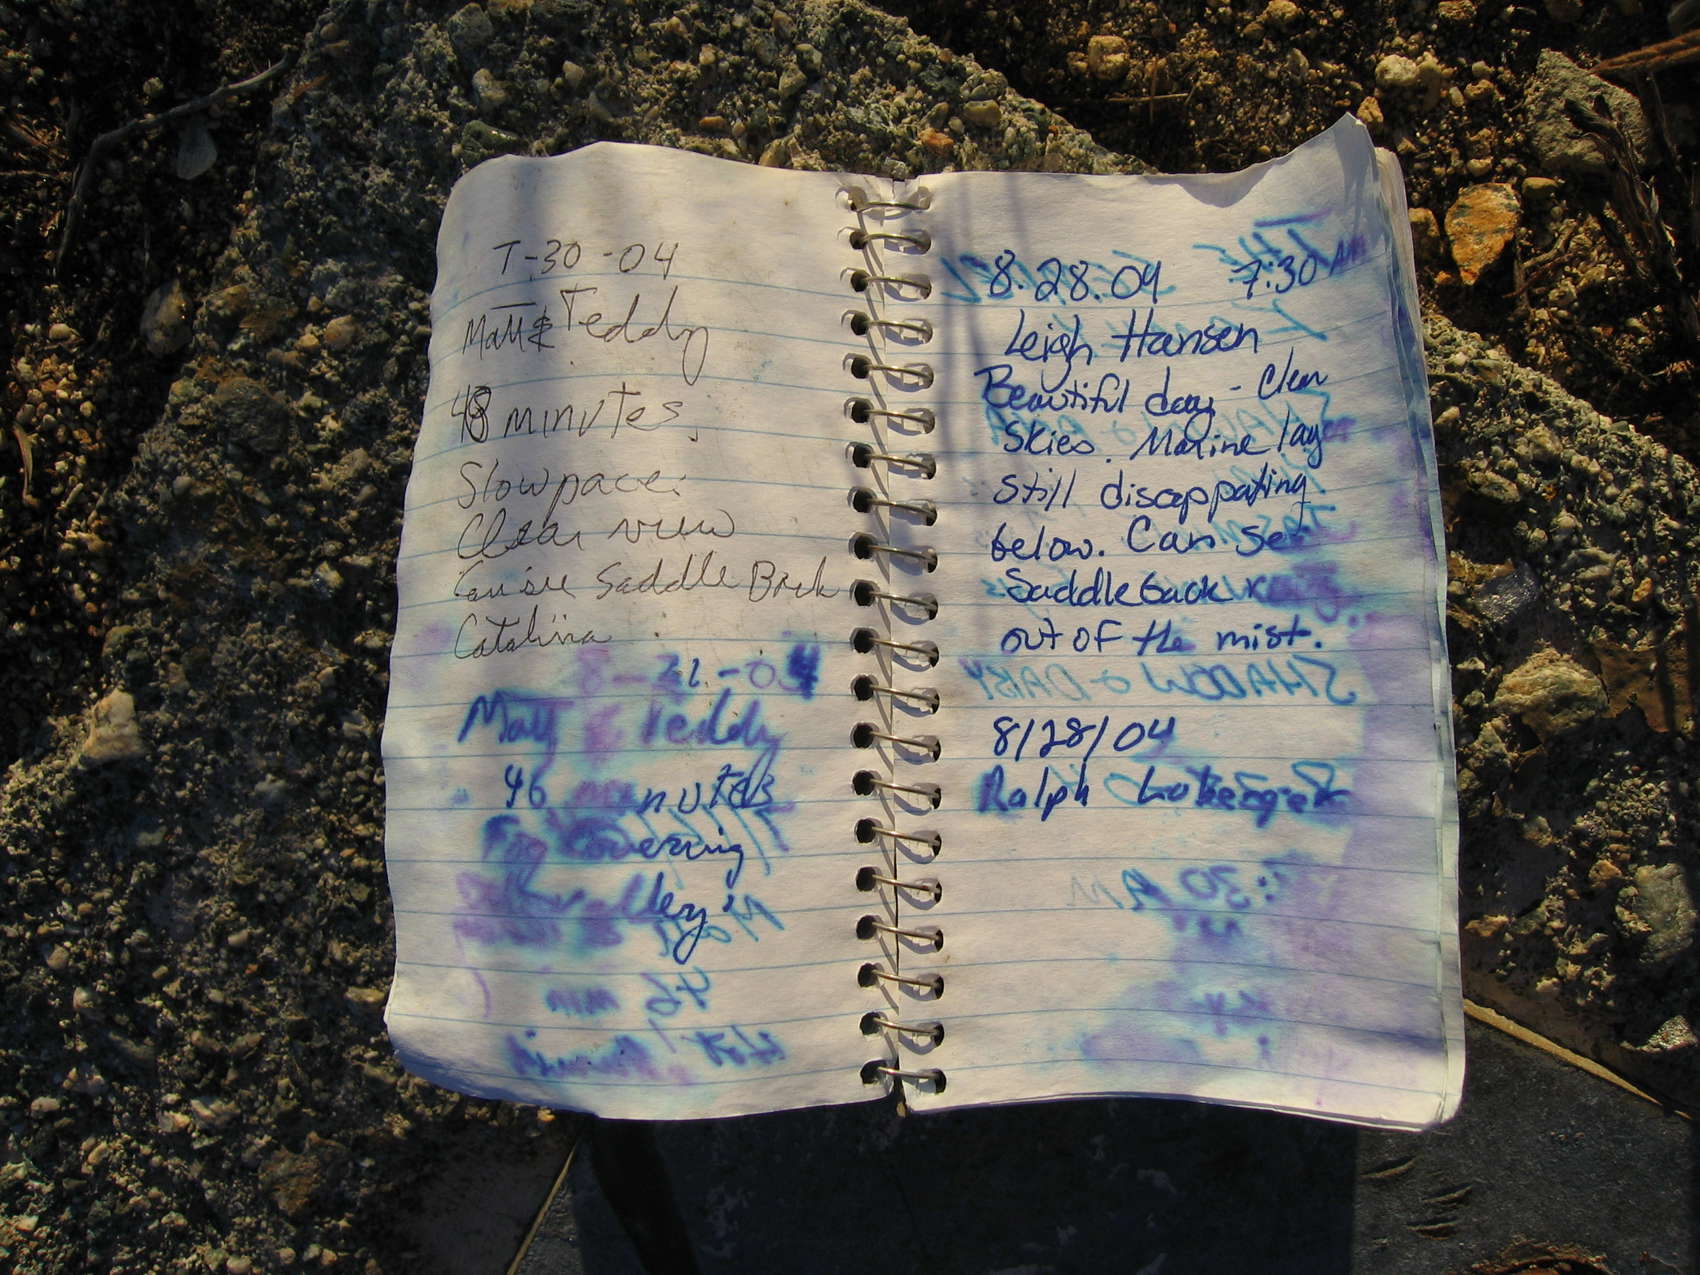 7-30-04
Matt & Teddy
48 minutes.
Slow pace.
Clear view
Can see Saddle Back
Catalina
8-21-04
Matt & Teddy
46 minutes
Fog covering
valley
8.28.04 7:30 AM
Leigh Hansen
Beautiful day - Clear
skies. Marine lay
still disappating
below. Can see
Saddleback
out of the mist.
8/28/04
Ralph